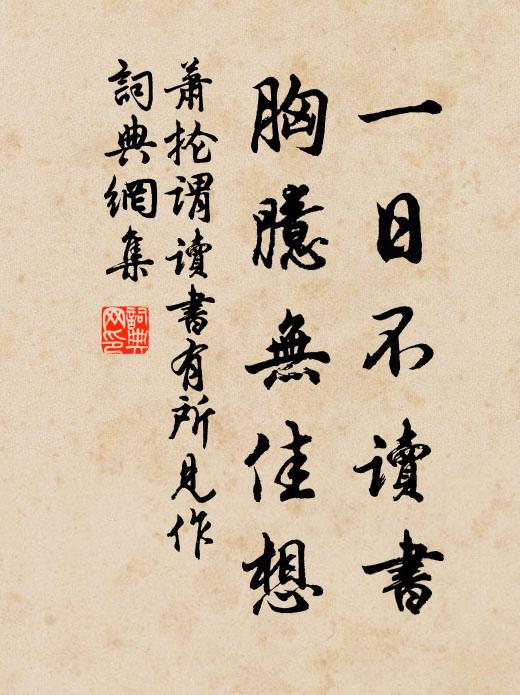 一日不讀書
胸臆無佳想
蕭掄謂讀書有所見作
詞典網集
詞典
网印